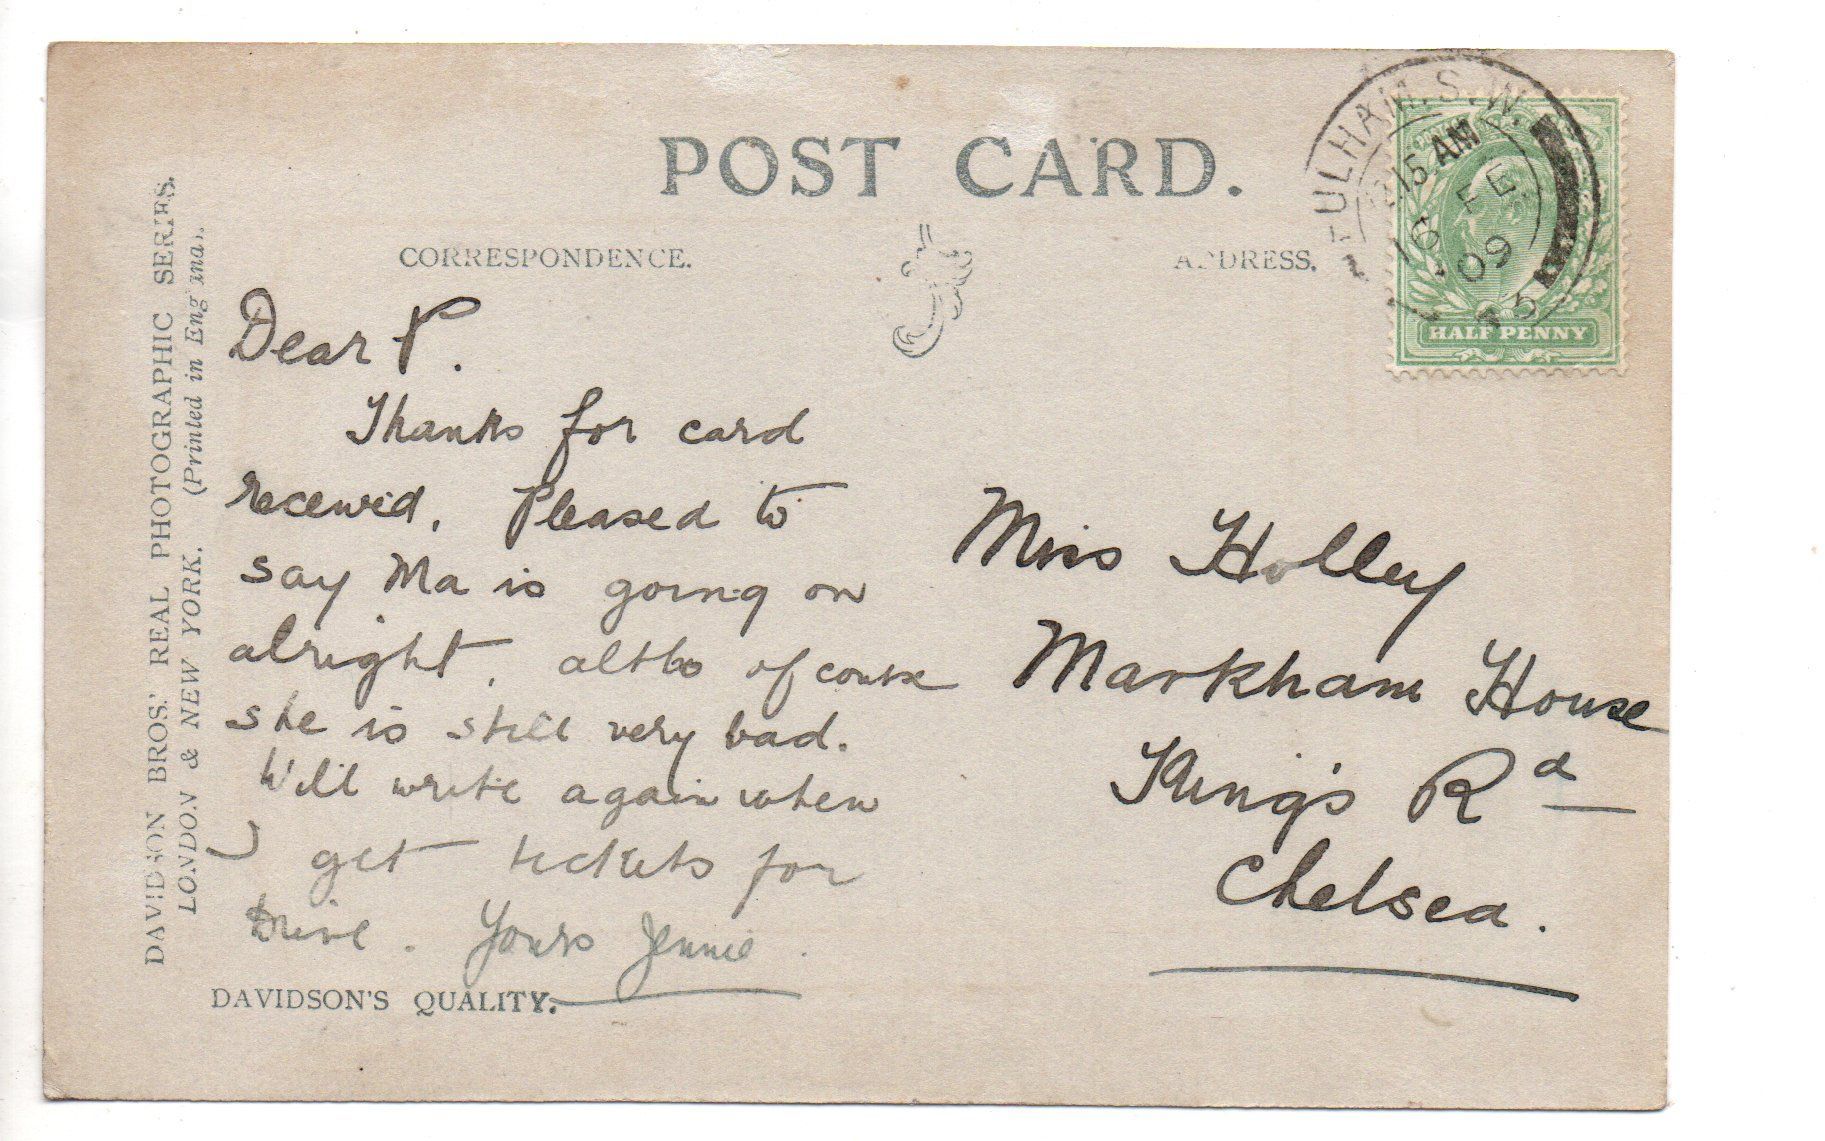 POST CARD.
CORRESPONDENCE.
ADDRESS.
DAVIDSON BROS.' REAL PHOTOGRAPHIC SERIES.
LONDON & NEW YORK. (Printed in England).
FULHAM. S.W.
15 AM
16 FE
09
HALF PENNY
Dear P.
Thanks for card
received. Pleased to
say Ma is going on
alright, altho of course
she is still very bad.
Will write again when
I get tickets for
Drive. Yours Jennie.
DAVIDSON'S QUALITY.
Miss Holley
Markham House
King's Rd
Chelsea.